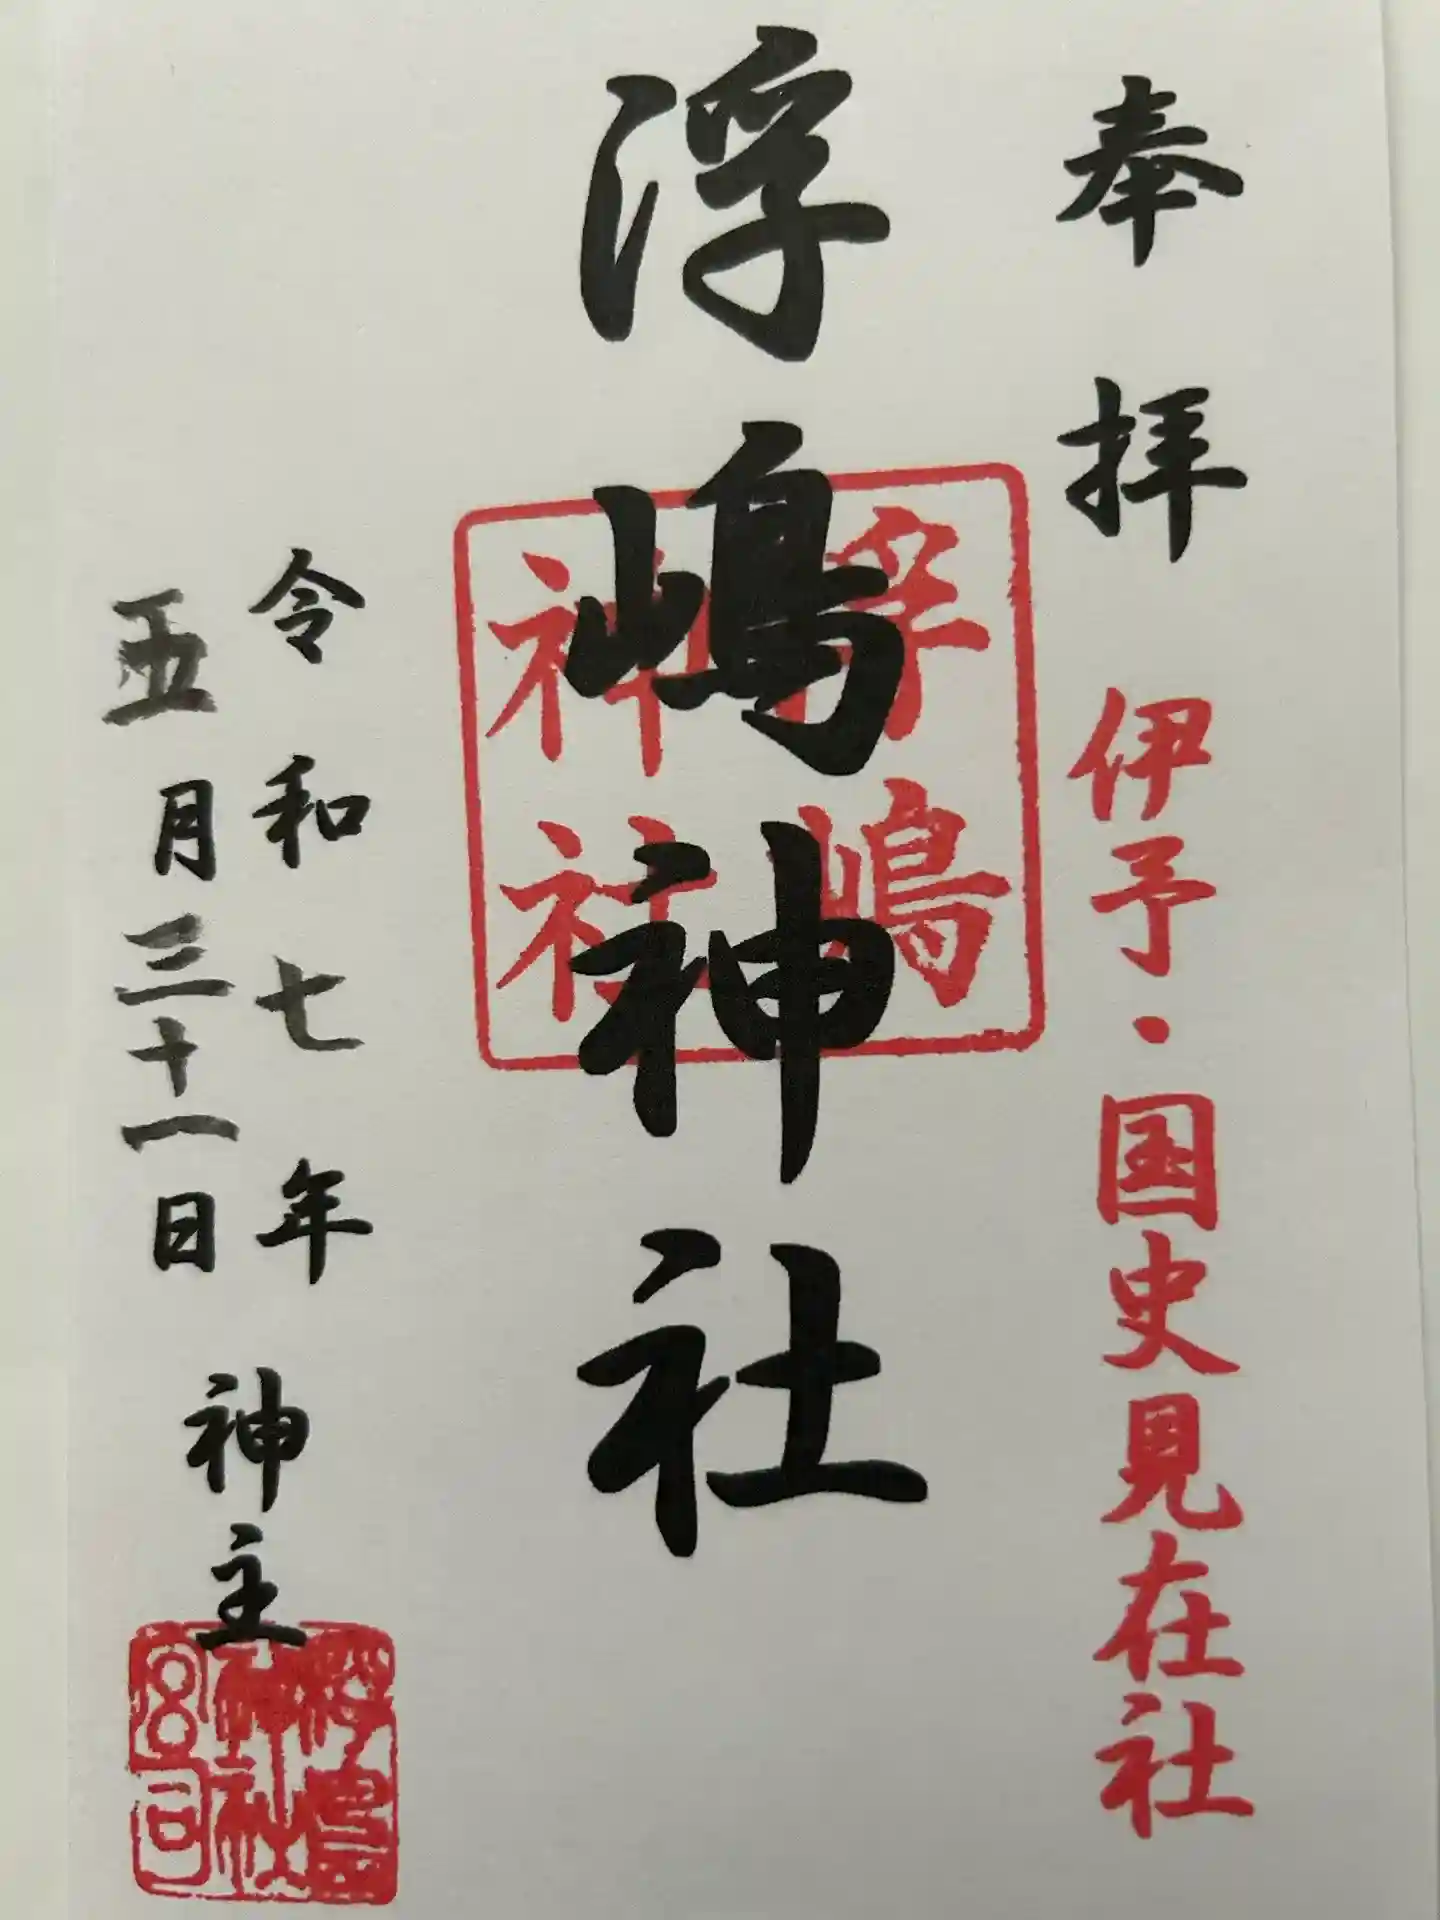 奉拝
伊予・国史見在社
浮嶋神社
浮嶋
神社
令和七年
五月三十一日
神主
浮嶋
神社
宮司